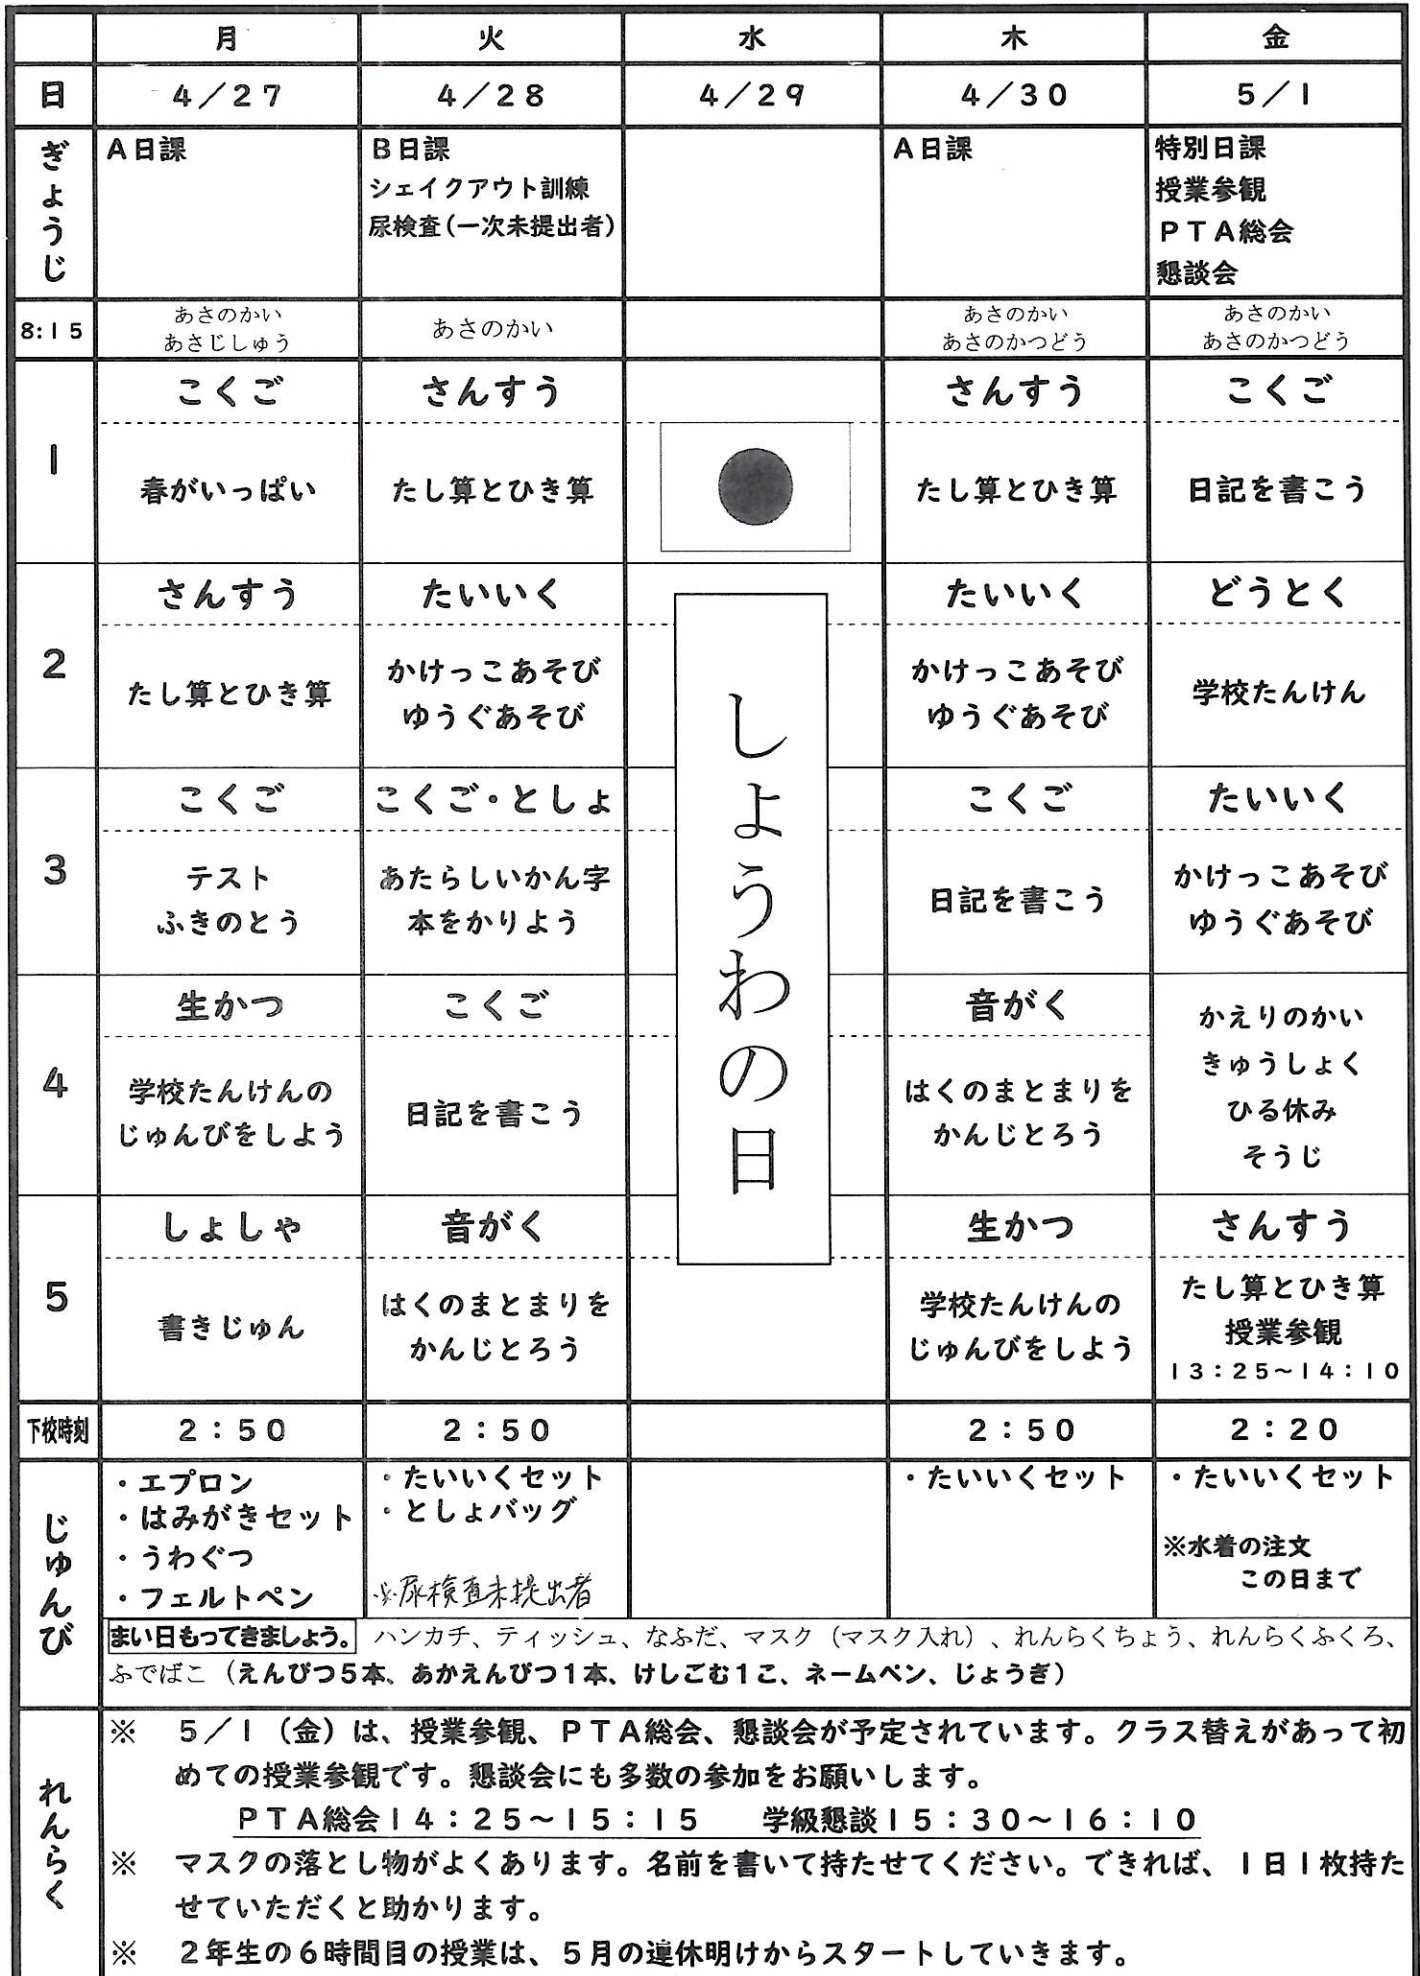 月 火 水 木 金
日 4／27 4／28 4／29 4／30 5／1
ぎょうじ
A日課
B日課
シェイクアウト訓練
尿検査(一次未提出者)
A日課
特別日課
授業参観
PTA総会
懇談会
8:15
あさのかい
あさじしゅう
あさのかい
あさのかい
あさのかつどう
あさのかい
あさのかつどう
1
こくご
春がいっぱい
さんすう
たし算とひき算
さんすう
たし算とひき算
こくご
日記を書こう
しょうわの日
2
さんすう
たし算とひき算
たいいく
かけっこあそび
ゆうぐあそび
たいいく
かけっこあそび
ゆうぐあそび
どうとく
学校たんけん
3
こくご
テスト
ふきのとう
こくご・としょ
あたらしいかん字
本をかりよう
こくご
日記を書こう
たいいく
かけっこあそび
ゆうぐあそび
4
生かつ
学校たんけんの
じゅんびをしよう
こくご
日記を書こう
音がく
はくのまとまりを
かんじとろう
かえりのかい
きゅうしょく
ひる休み
そうじ
5
しょしゃ
書きじゅん
音がく
はくのまとまりを
かんじとろう
生かつ
学校たんけんの
じゅんびをしよう
さんすう
たし算とひき算
授業参観
13：25～14：10
下校時刻 2：50 2：50 2：50 2：20
じゅんび
・エプロン
・はみがきセット
・うわぐつ
・フェルトペン
・たいいくセット
・としょバッグ
※尿検査未提出者
・たいいくセット
・たいいくセット
※水着の注文
この日まで
まい日もってきましょう。 ハンカチ、ティッシュ、なふだ、マスク（マスク入れ）、れんらくちょう、れんらくふくろ、
ふでばこ（えんぴつ5本、あかえんぴつ1本、けしごむ1こ、ネームペン、じょうぎ）
れんらく
※ 5／1（金）は、授業参観、PTA総会、懇談会が予定されています。クラス替えがあって初
めての授業参観です。懇談会にも多数の参加をお願いします。
PTA総会14：25～15：15 学級懇談15：30～16：10
※ マスクの落とし物がよくあります。名前を書いて持たせてください。できれば、1日1枚持た
せていただくと助かります。
※ 2年生の6時間目の授業は、5月の連休明けからスタートしていきます。